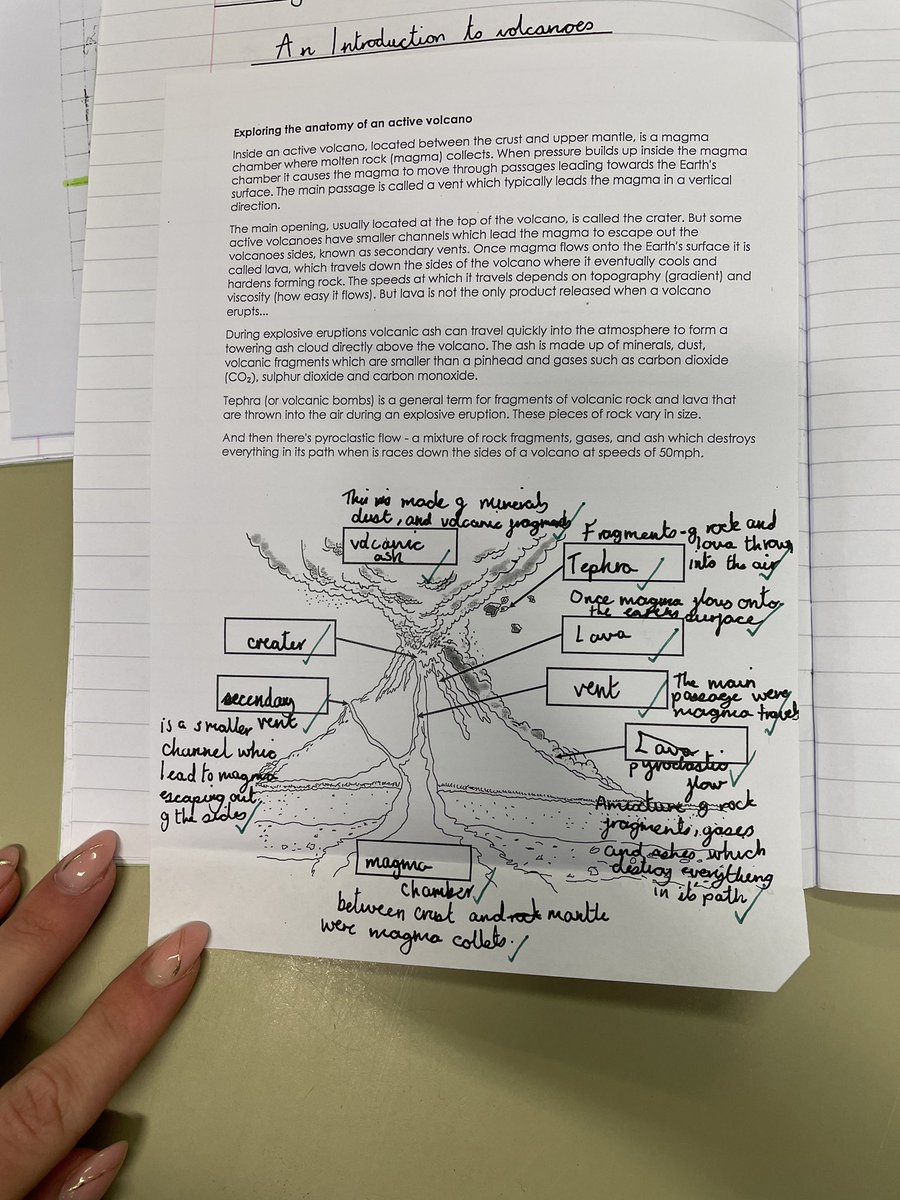 An Introduction to volcanoes
Exploring the anatomy of an active volcano
Inside an active volcano, located between the crust and upper mantle, is a magma
chamber where molten rock (magma) collects. When pressure builds up inside the magma
chamber it causes the magma to move through passages leading towards the Earth's
surface. The main passage is called a vent which typically leads the magma in a vertical
direction.
The main opening, usually located at the top of the volcano, is called the crater. But some
active volcanoes have smaller channels which lead the magma to escape out the
volcanoes sides, known as secondary vents. Once magma flows onto the Earth's surface it is
called lava, which travels down the sides of the volcano where it eventually cools and
hardens forming rock. The speeds at which it travels depends on topography (gradient) and
viscosity (how easy it flows). But lava is not the only product released when a volcano
erupts...
During explosive eruptions volcanic ash can travel quickly into the atmosphere to form a
towering ash cloud directly above the volcano. The ash is made up of minerals, dust,
volcanic fragments which are smaller than a pinhead and gases such as carbon dioxide
(CO₂), sulphur dioxide and carbon monoxide.
Tephra (or volcanic bombs) is a general term for fragments of volcanic rock and lava that
are thrown into the air during an explosive eruption. These pieces of rock vary in size.
And then there's pyroclastic flow - a mixture of rock fragments, gases, and ash which destroys
everything in its path when is races down the sides of a volcano at speeds of 50mph.
This is made of minerals
dust, and volcanic fragments
volcanic
ash
Fragments of rock and
lava thrown
into the air
Tephra
Once magma flows onto
the earths surface
Lava
creater
vent
The main
passage were
magma travels
secendary
vent
is a smaller
channel whic
lead to magma
escaping out
of the sides
Lava
pyroclastic
flow
A mixture of rock
fragments, gases
and ashes which
destroy everything
in its path
magma
chamber
between crust and rock mantle
were magma collets.